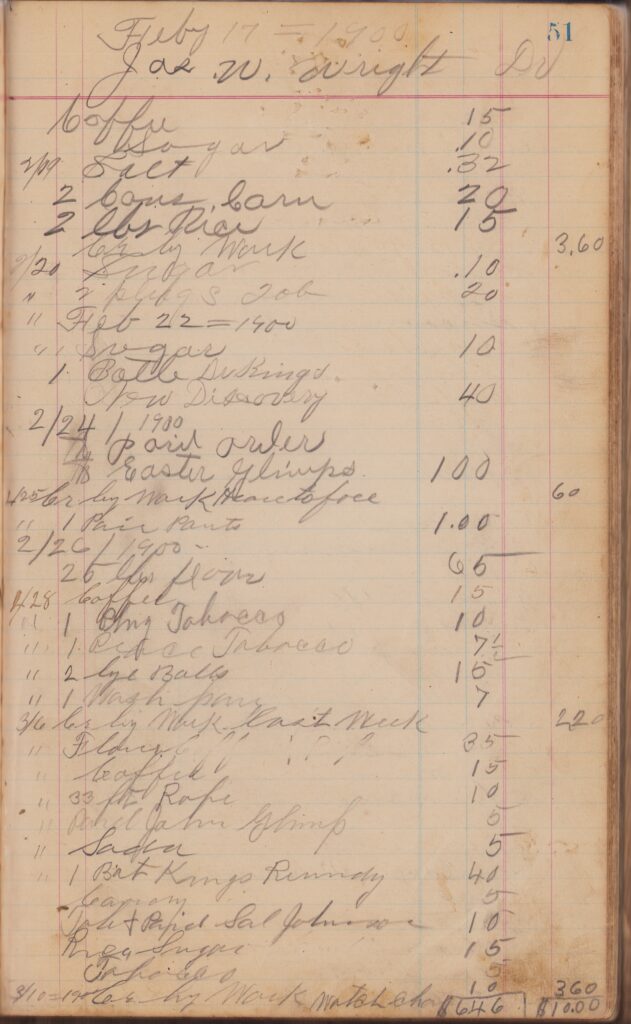 51
Feby 17 = 1900
Jas. W. Wright Dr
Coffee 15
Sugar .10
2/19 Salt .32
2 Cans Carn 20
2 lbs Rice 15
Cr by Work 3.60
2/20 Sugar .10
" 2 plugs Tob 20
" Feb 22 = 1900
" Sugar 10
1 Bottle Dr Kings
New Discovery 40
2/24/1900
paid order
Easter Glimps 100
Cr by Work Heretofore 60
" 1 Pair Pants 1.00
2/26/1900
25 lbs flour 65
2/28 Coffee 15
" 1 Plug Tobacco 10
" 1 Piece Tobacco 7½
" 2 lye Balls 15
" 1 Wash pan 7
3/6 Cr by Work Last Week 220
" Flour 35
Coffee 15
" 33 ft Rope 10
" Paid John Glimp 5
" Sugar 5
" 1 Bot Kings Remidy 40
5
Tob & Paid Sal Johnson 10
Sugar 15
Tobacco
10
3/10=1900 Cr by Work 360
$646 $10.00